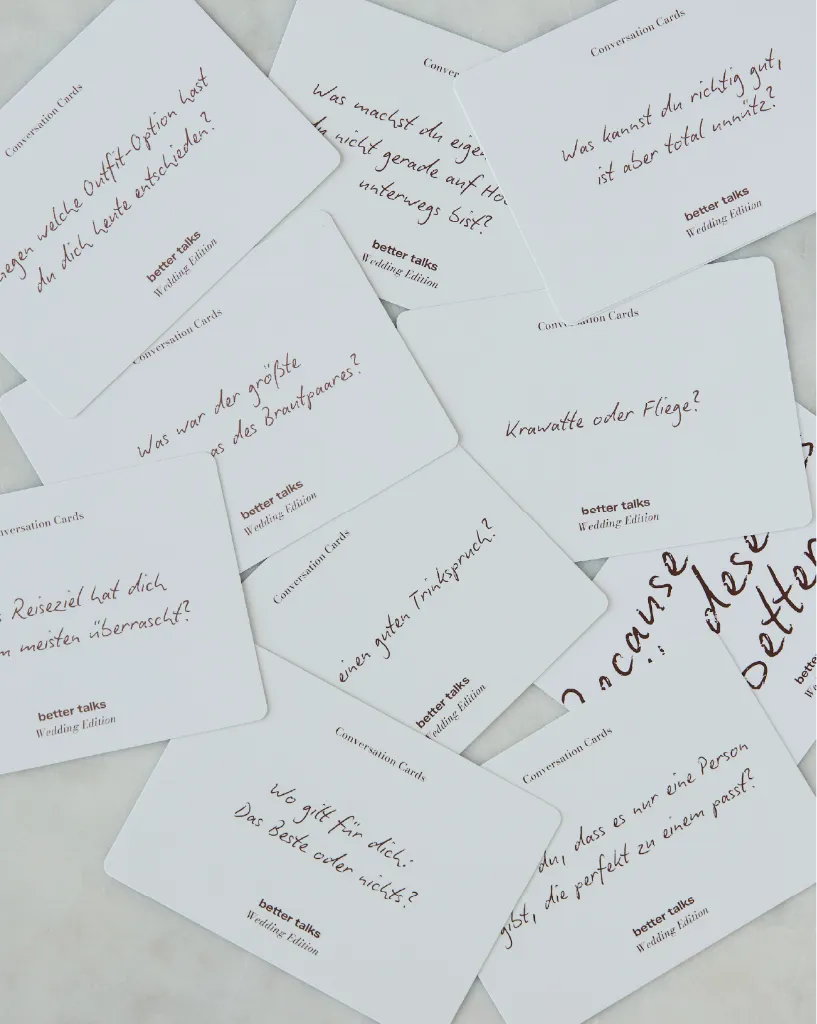 Conversation Cards
welche Outfit-Option hast
du dich heute entschieden?
better talks
Wedding Edition
Was machst du
du nicht gerade auf
unterwegs bist?
better talks
Wedding Edition
Conversation Cards
Was kannst du richtig gut,
ist aber total unnütz?
better talks
Wedding Edition
Conversation Cards
Was war der größte
des Brautpaares?
better talks
Wedding Edition
Cards
Krawatte oder Fliege?
better talks
Wedding Edition
Cards
Reiseziel hat dich
meisten überrascht?
better talks
Wedding Edition
Conversation Cards
einen guten Trinkspruch?
better talks
Wedding Edition
better
Conversation Cards
Wo gilt für dich:
Das Beste oder nichts?
better talks
Wedding Edition
Conversation Cards
du, dass es nur eine Person
gibt, die perfekt zu einem passt?
better talks
Wedding Edition